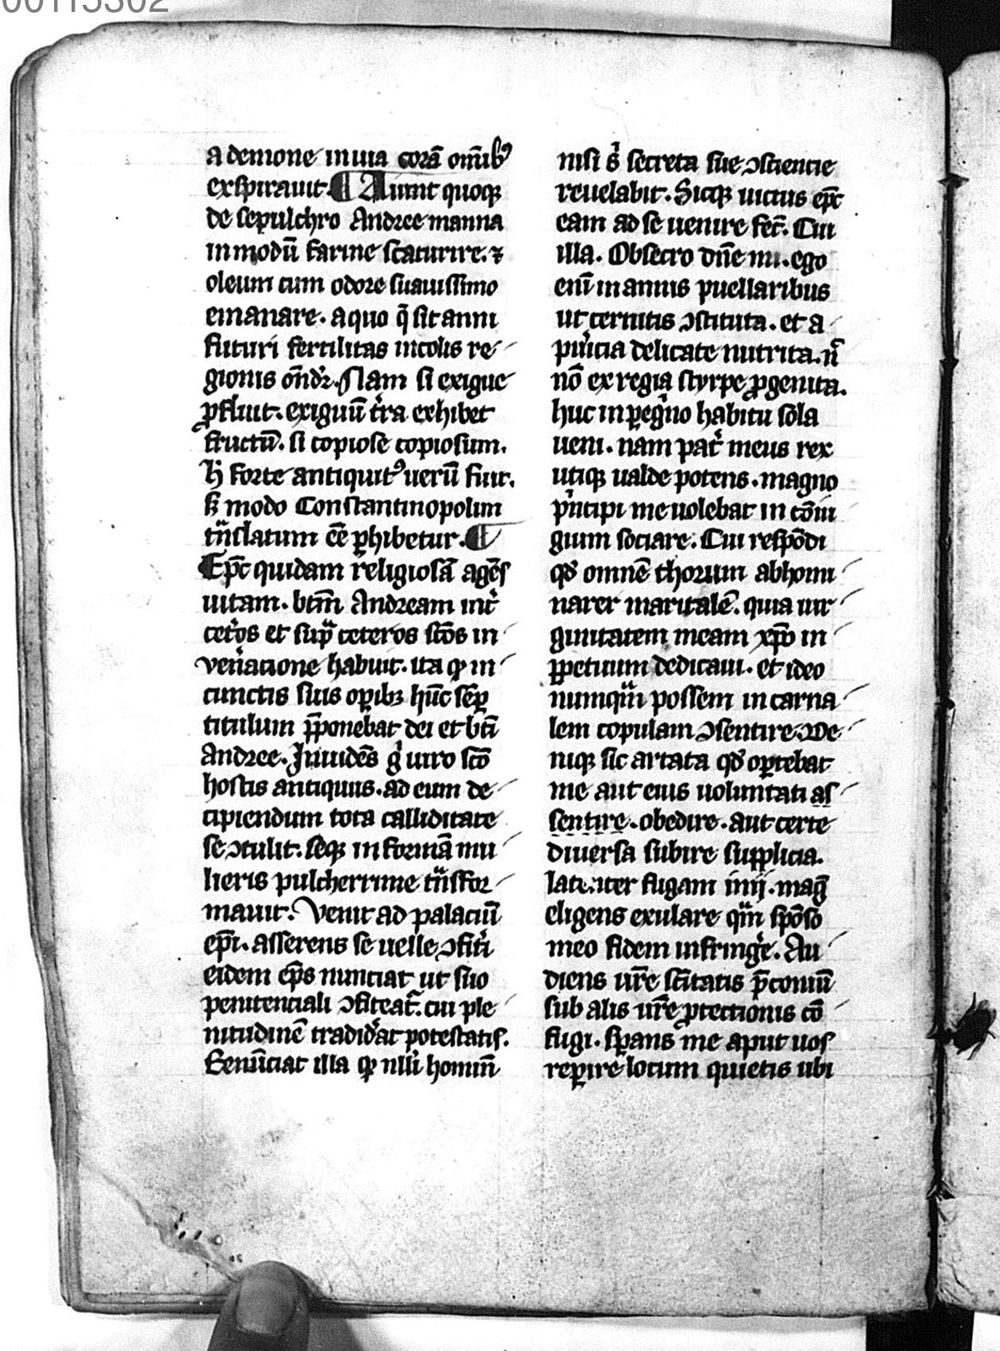 00113302
a demone in uia corã om̃ib᷒
expirauit. ¶ Aiunt quoq̃
de sepulchro Andree manna
in modũ farine scaturire. ⁊
oleum cum odore suauissimo
emanare. a quo q̃ sit anni
futuri fertilitas incolis re
gionis on̄dr̃. Nam si exigue
ꝓfluit. exiguũ t̃ra exhibet
fructũ. si copiose copiosum.
h̃ forte antiquit᷒ uerũ fuit.
s̃ modo Constantinopolim
tñslatum eẽ ꝑhibetur. ¶
Ep̃c quidam religiosã agẽs
uitam. btm̃ Andream int̃
cet̃os et sup̃ ceteros sc̃os in
uen̾atione habuit. ita ꝙ in
cunctis suis oꝑibꝫ hũc sẽꝑ
titulum p̃ponebat dei et bt̃i
Andree. Inuidẽs g̾ uiro sc̃o
hostis antiquus. ad eum de
cipiendum tota calliditate
se ↄtulit. seq̃ in formã mu
lieris pulcherrime tñsfor
mauit. Venit ad palaciũ
ep̃i. asserens se uelle ↄfit̃i
eidem ep̃s nunciat ut suo
penitenciali ↄfiteat̃. cui ple
nitudinẽ tradid̾at potestatis.
Renũciat illa ꝙ nulli homin̄
nisi s̾ secreta sue ↄsciencie
reuelabit. Sicq̃ uictus ep̃c
eam ad se uenire fec̃. Cui
illa. Obsecro dñe mi. ego
enĩ in annis puellaribus
ut cernitis ↄstituta. et a
pu̾icia delicate nutrita. n̾
nõ ex regia styrpe ꝓgenita.
huc in ꝑeg̾no habitu sola
ueni. nam pat̾ meus rex
utiq̃ ualde potens. magno
pͥncipi me uolebat in cõiu
gium sociare. Cui respõdi
qd̾ omnẽ thorum abhomi
narer maritalẽ. quia uir
ginitatem meam xp̃o in
ꝑpetuum dedicaui. et ideo
numqᷓm possem in carna
lem copulam ↄsentire. De
niq̃ sic artata qd̾ oꝑtebat
me aut eius uoluntati as
sentire. obedire. aut certe
diuersa subire supplicia.
latenter fugam inij. mag̾
eligens exulare qᷓm spõso
meo fidem infring̾e. Au
diens ur̃e sc̃itatis p̃coniũ
sub alis ur̃e ꝓtectionis cõ
fugi. sꝑans me aput uos
reꝑire locum quietis ubi